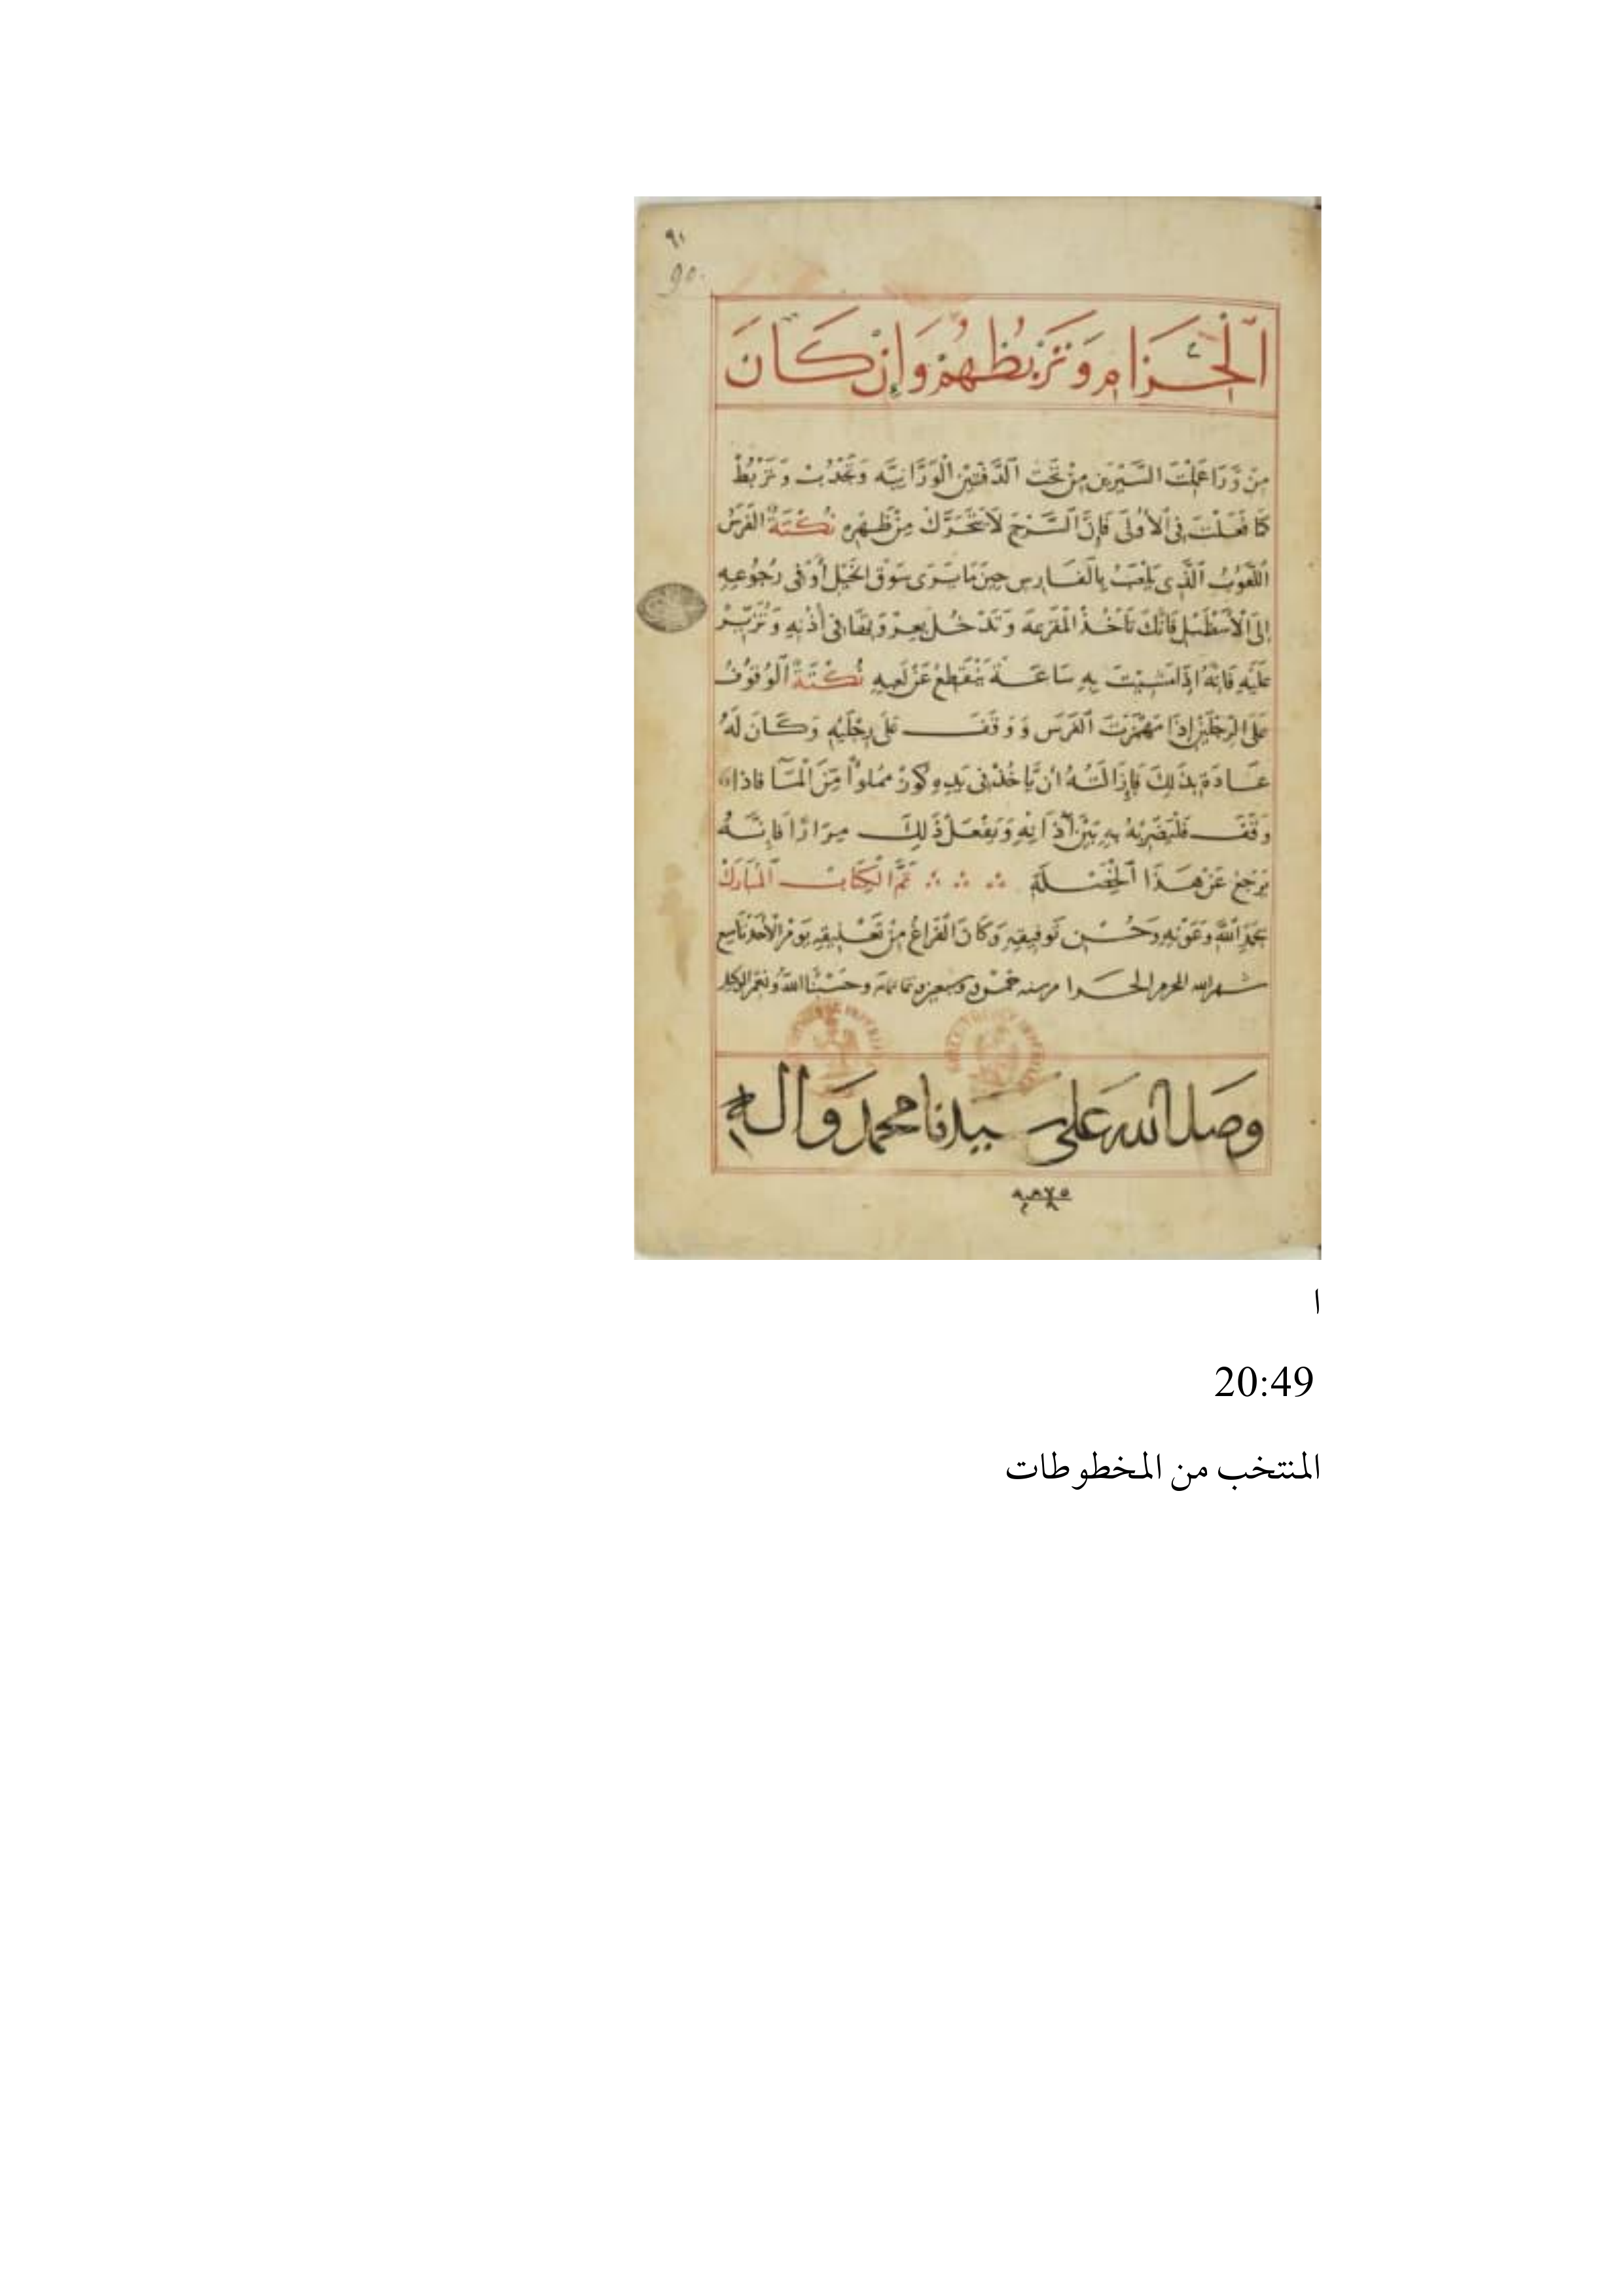 ٩١
90.
اَلْحِزَامِ وَتَرْبُطُهُمْ وَإِنْ كَانَ
مِنْ وَرَا عَمِلْتَ السَّيْرَيْنِ مِنْ تَحْتِ الدَّفَتَيْنِ الْوَرَّانِيَّه وَتَجْذِبْ وَتَرْبُطْ
كَمَا فَعَلْتَ فِى الْأُولَى فَإِنَّ السَّرْجَ لَا يَتَحَرَّكْ مِنْ ظَهْرِهِ نُكْتَةٌ الفَرَسُ
اللَّعُوبُ الَّذِى يَلْعَبُ بِالْفَارِسِ حِينَ مَا يَرَى سَوْقَ الخَيْلِ أَوْ فِى رُجُوعِهِ
إِلَى الْأَسْطَبْلِ فَانَّكَ تَأْخُذُ الْمَقْرَعَهَ وَتَدْخُلُ فِى أُذُنِهِ
عَلَيْهِ فَانَّهُ إِذَا مَشَيْتَ بِهِ سَاعَةً يَنْقَطِعُ عَنْ لَعِبِهِ نُكْتَةٌ الْوُقُوفُ
عَلَى الرِّجْلَيْنِ إِذَا مَهْمَزْتَ الفَرَسَ وَوَقَفَ عَلَى رِجْلَيْهِ وَكَانَ لَهُ
عَادَةٌ بِذَلِكَ فَإِزَالَتُهُ انْ يَّاخُذْ فِى يَدِهِ كُوزْ مَمْلوًا مِنَ الْمَآ فاذا
وَقَفَ فَلْيَضْرِبْهُ بِهِ بَيْنَ آذَانِهِ وَيَفْعَلُ ذَلِكَ مِرَارًا فَإِنَّهُ
يَرْجِعُ عَنْ هَذَا الْخَصْلَةِ تَمَّ الْكِتَابْ الْمُبَارَكْ
بِحَمْدِ اللهِ وَعَوْنِهِ وَحُسْنِ تَوْفِيقِهِ وَكَانَ الْفَرَاغُ مِنْ تَعْلِيقِهِ يَوْمَ الْأَحَدْ تَاسِعْ
شهر الله المحرم الحرا م سنه خمس وسبعين وثمانمائة وحَسْبُنَا اللهُ ونعم الوكيل
وصل الله على سيدنا محمد واله
٨٧٥
ا
20:49
المنتخب من المخطوطات